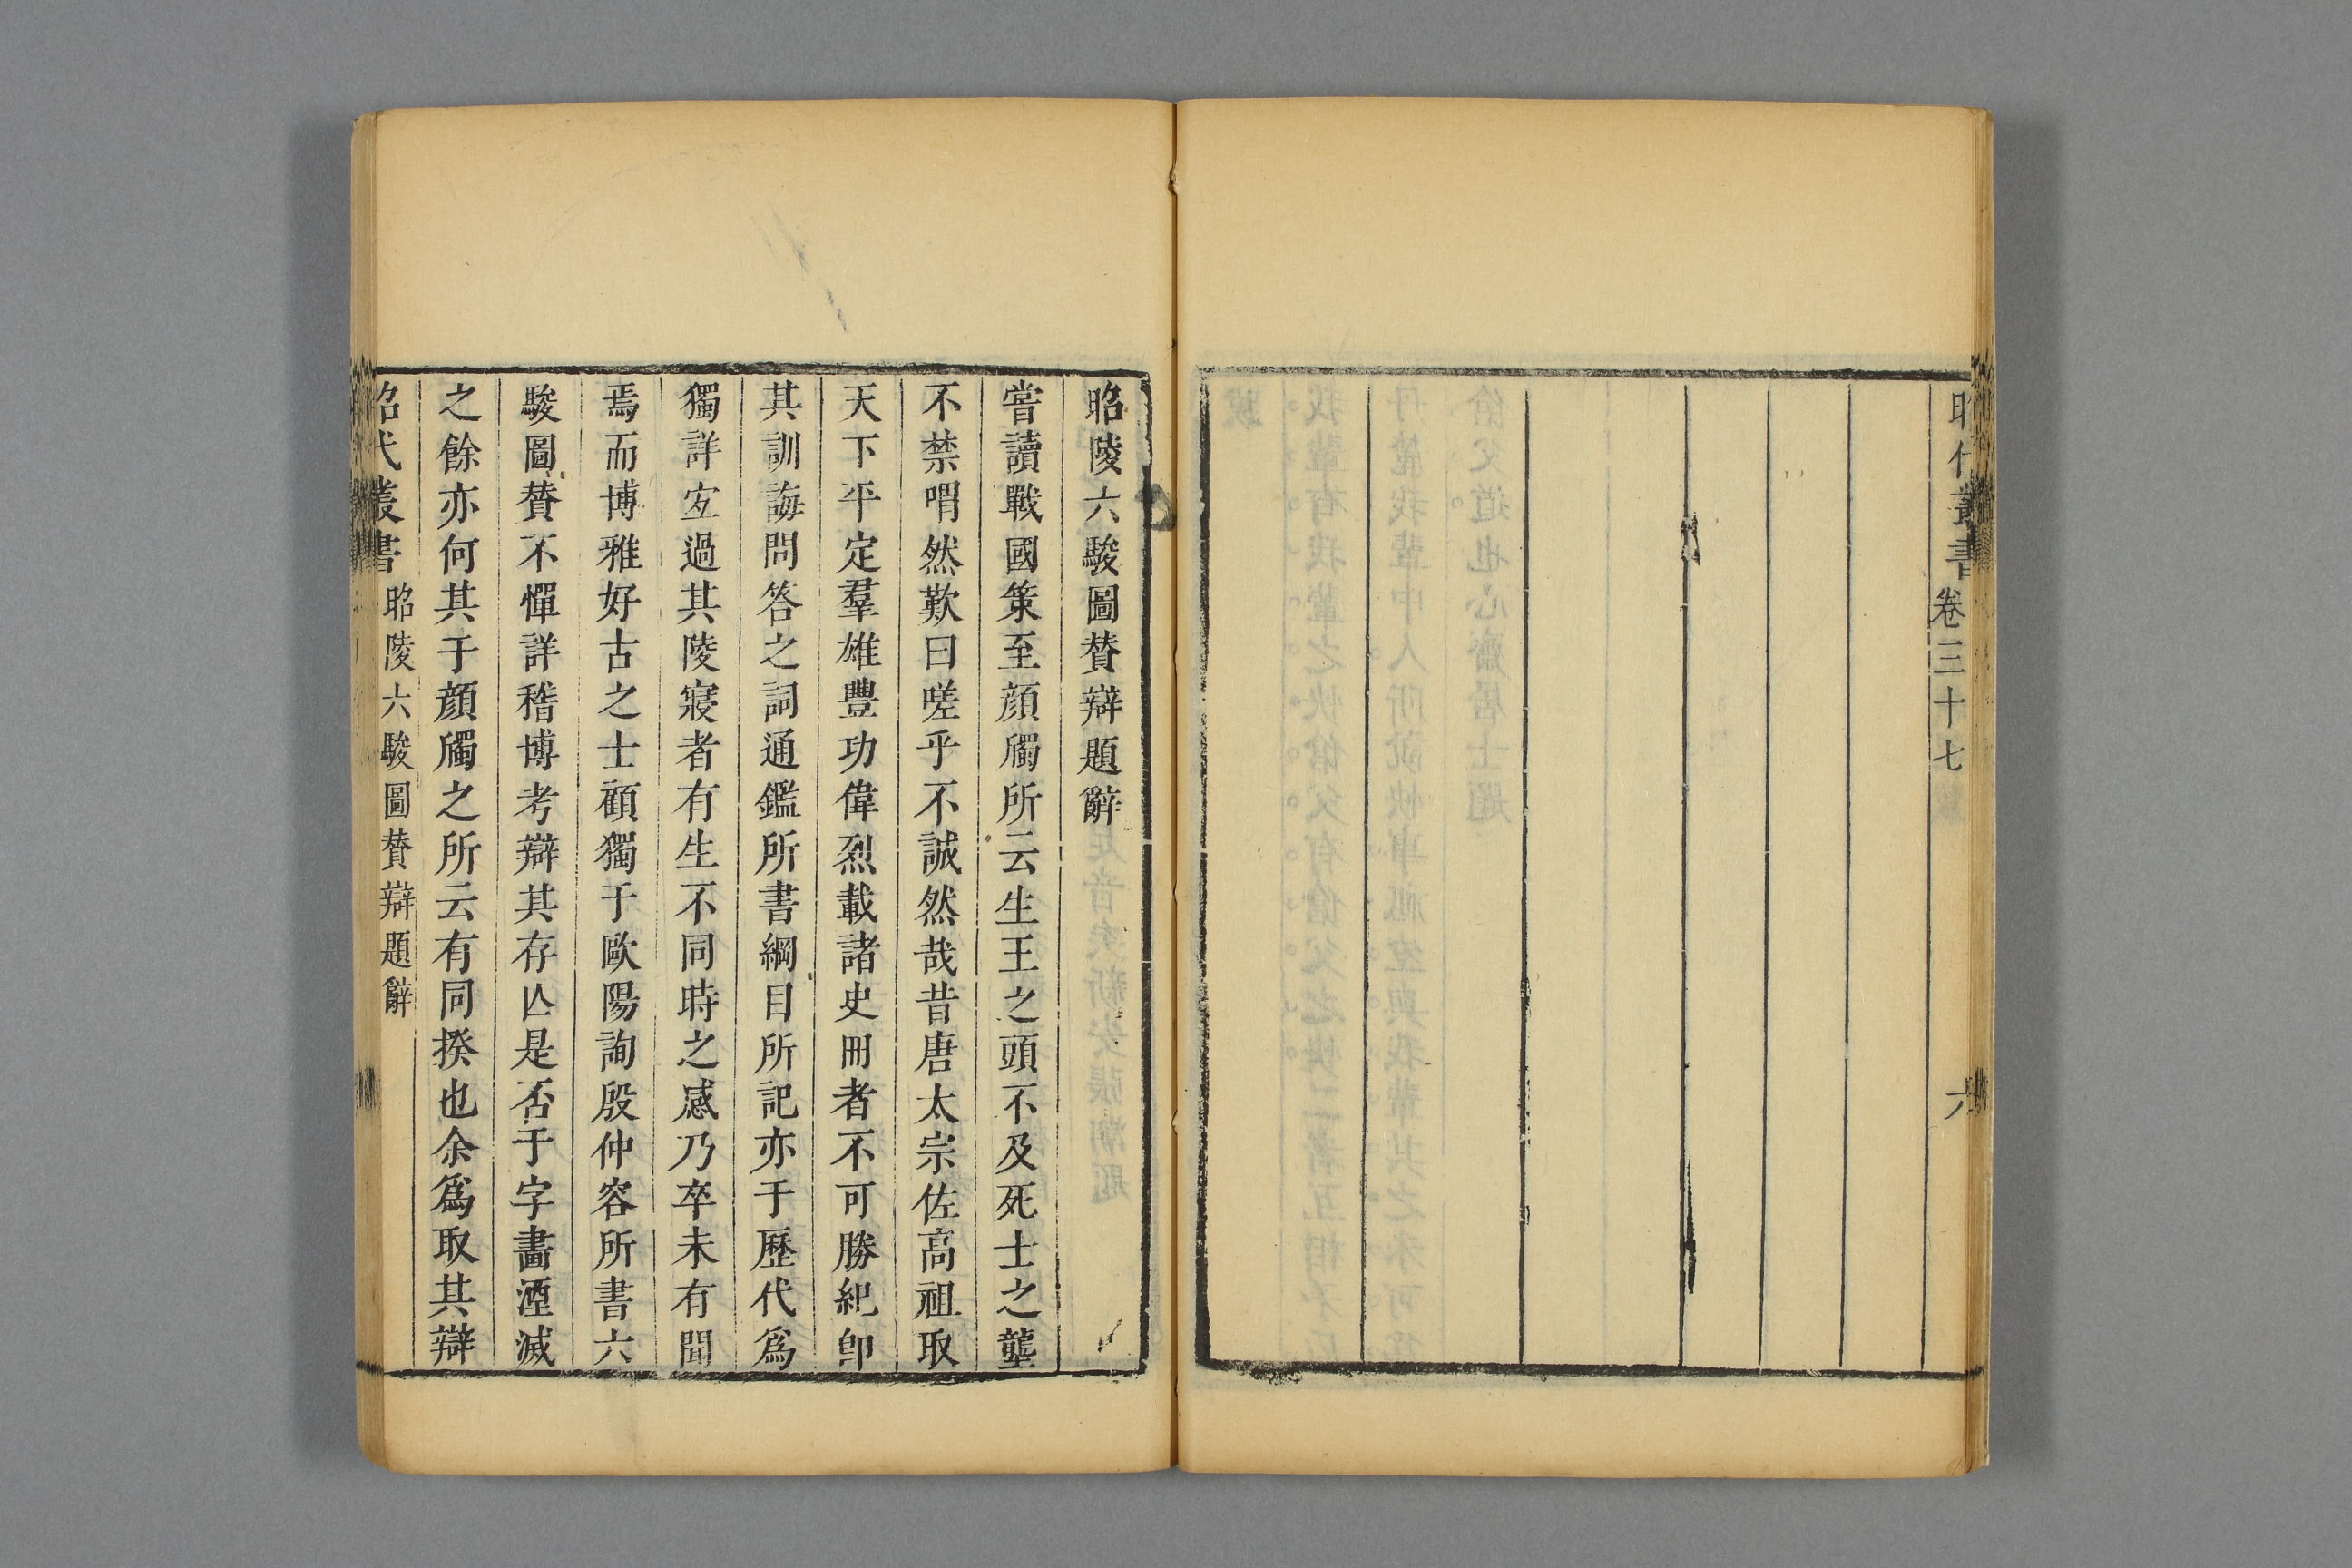 昭代叢書
卷三十七
六
昭陵六駿圖賛辯題辭
嘗讀戰國策至顔斶所云生王之頭不及死士之壟
不禁喟然歎曰嗟乎不誠然哉昔唐太宗佐高祖取
天下平定羣雄豐功偉烈載諸史冊者不可勝紀卽
其訓誨問答之詞通鑑所書綱目所記亦于歷代爲
獨詳宐過其陵寢者有生不同時之感乃卒未有聞
焉而博雅好古之士顧獨于歐陽詢殷仲容所書六
駿圖賛不憚詳稽博考辯其存亾是否于字畵湮滅
之餘亦何其于顔斶之所云有同揆也余爲取其辯
昭代叢書
昭陵六駿圖賛辯題辭